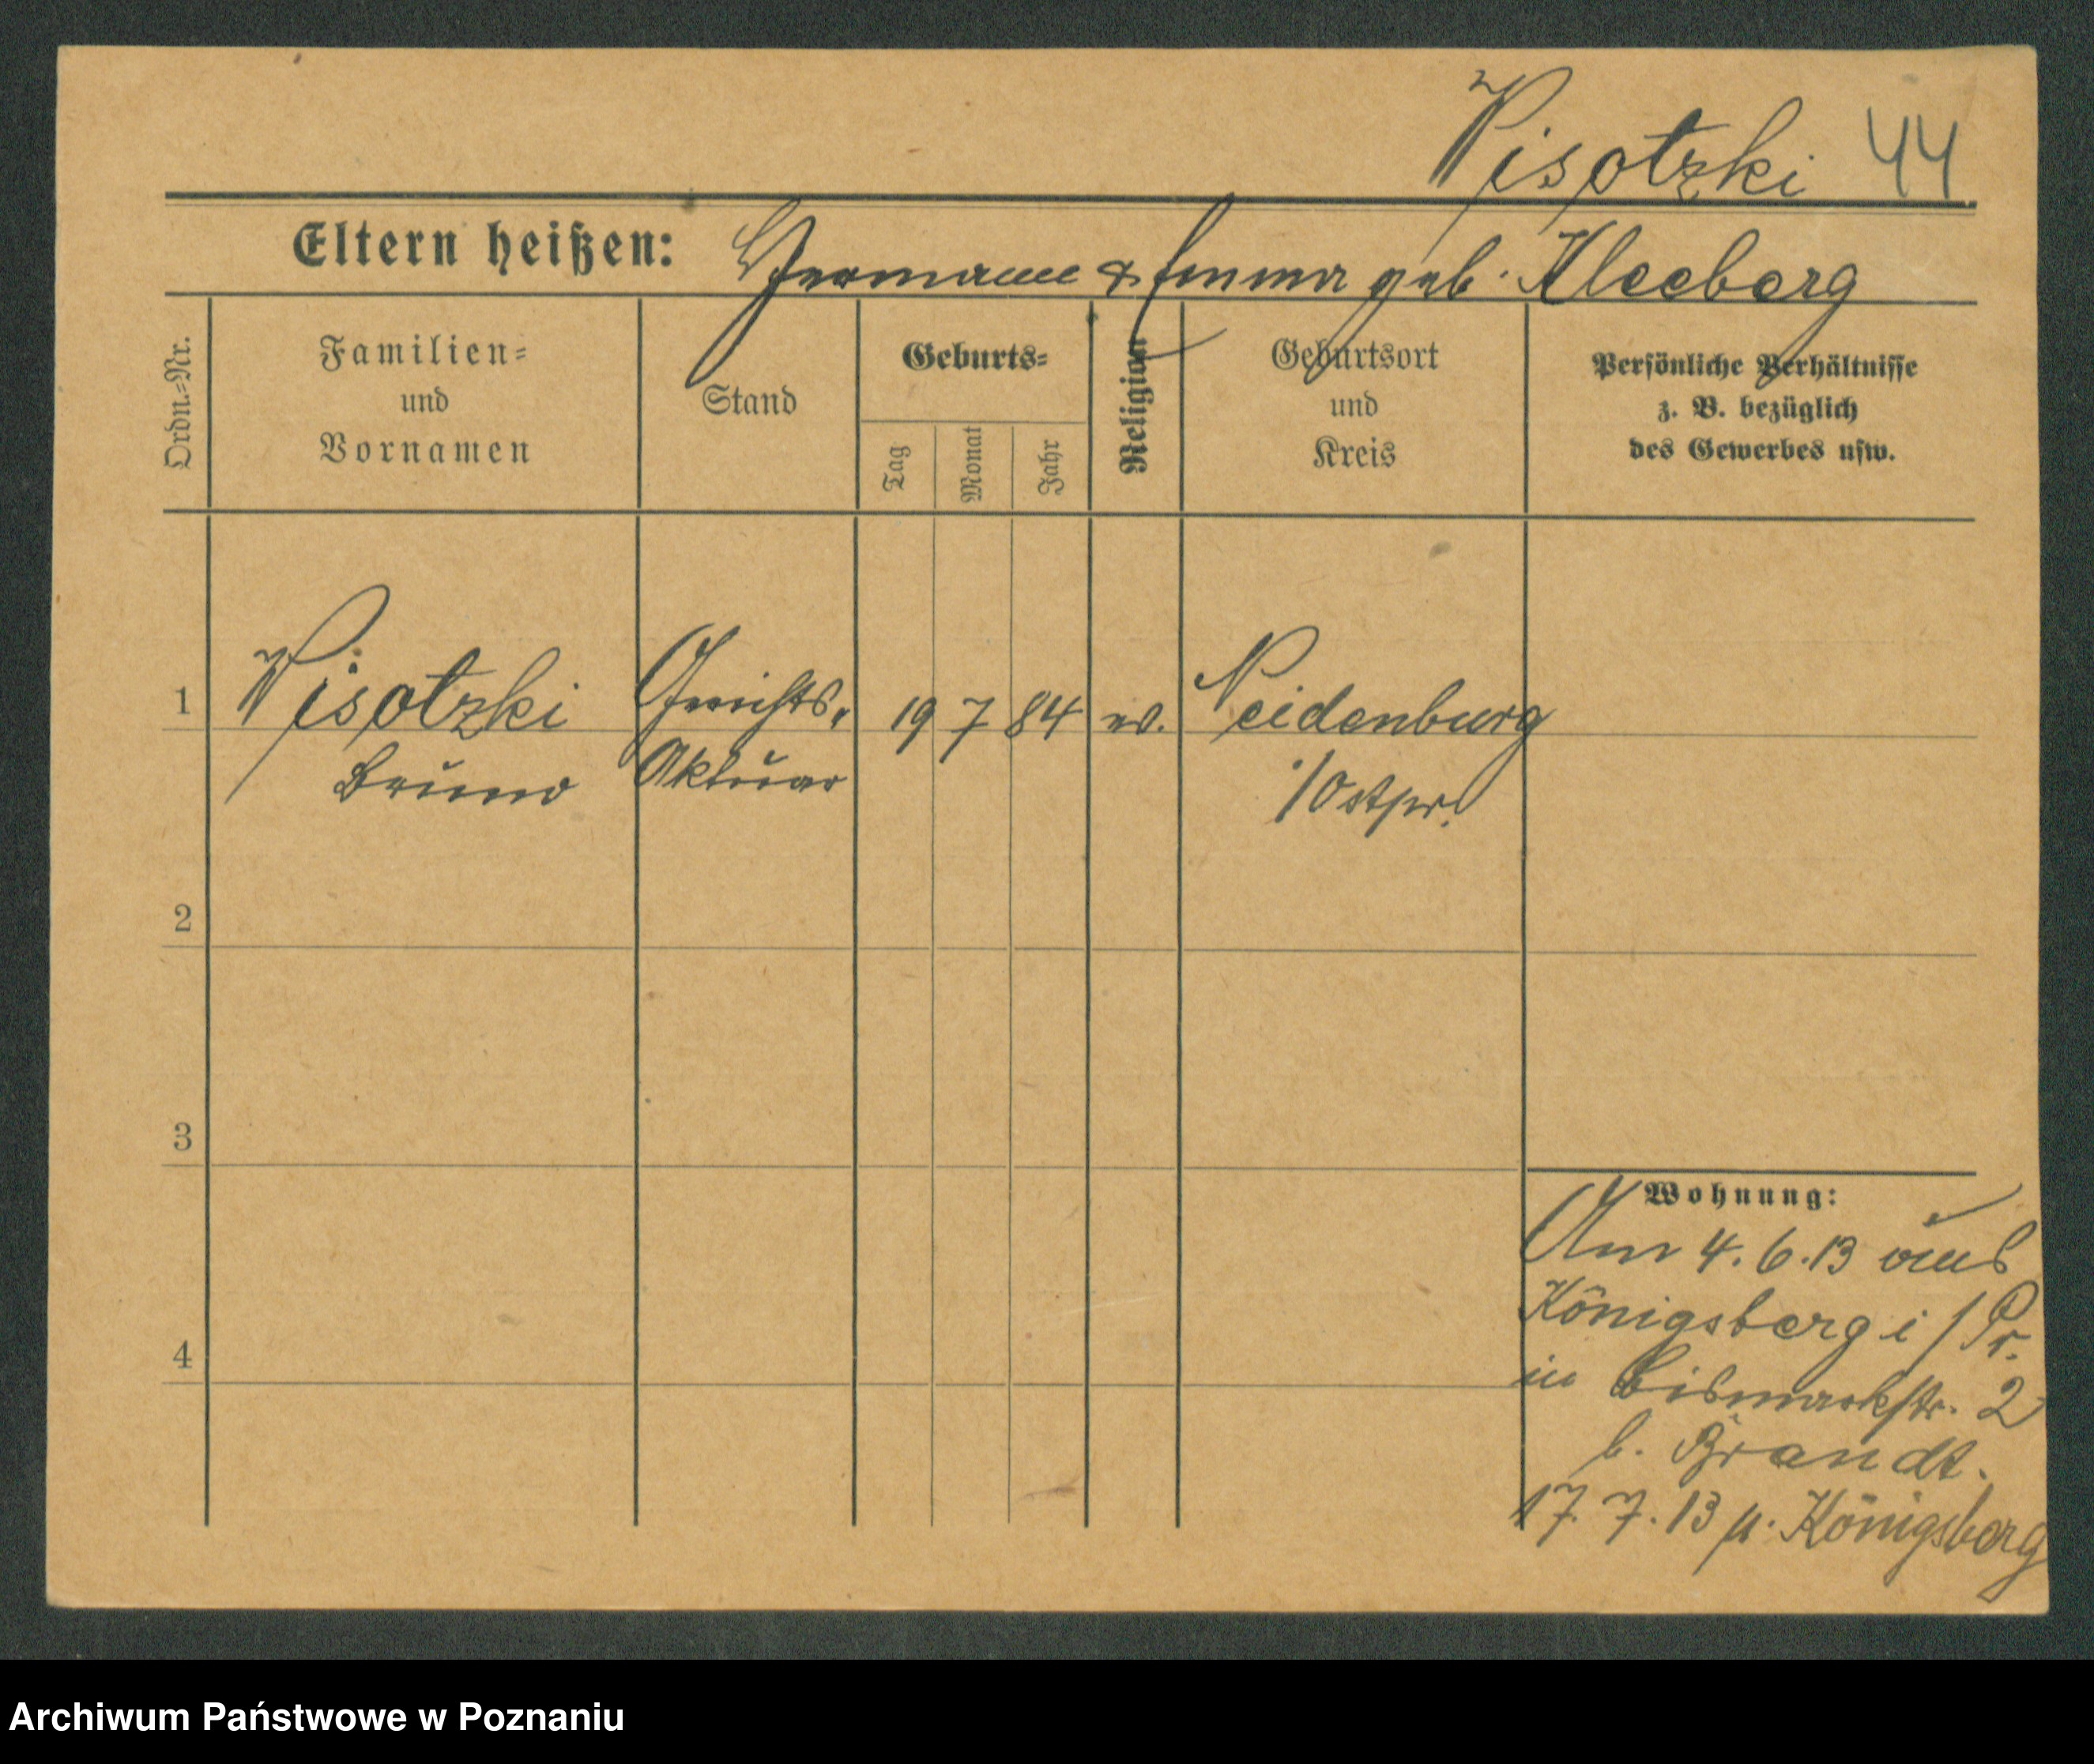 Wisotzki 44
Eltern heißen: Hermann & Emma geb. Kleeberg
Ordn.=Nr.
Familien=
und
Vornamen
Stand
Geburts=
Tag
Monat
Jahr
Religion
Geburtsort
und
Kreis
Persönliche Verhältnisse
z. B. bezüglich
des Gewerbes usw.
1 Wisotzki Gerichts- 19 7 84 ev. Neidenburg
Bruno Aktuar i/Ostpr.
2
3
4
Wohnung:
Am 4.6.13 aus
Königsberg i/Pr.
in Bismarckstr. 2
b. Brandt.
17.7.13 n. Königsberg
Archiwum Państwowe w Poznaniu